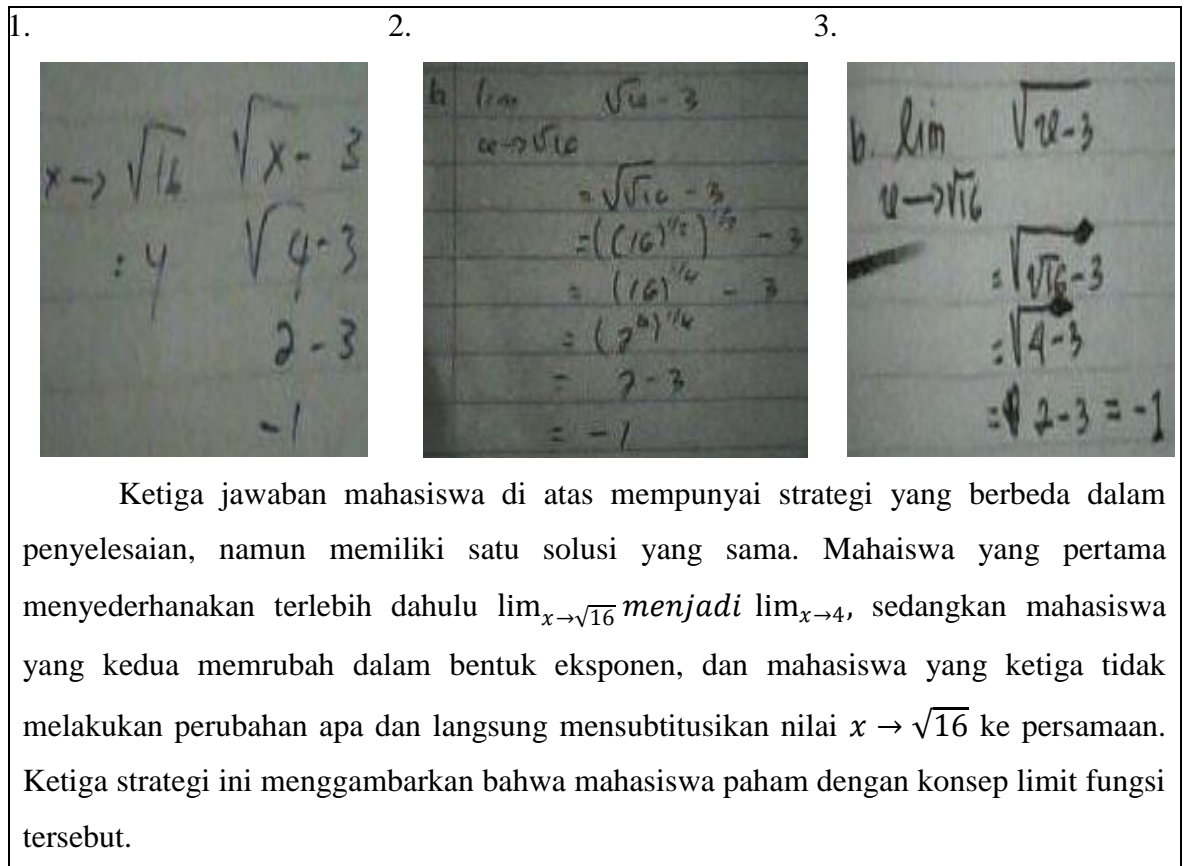 1. 2. 3.
x → √16 √x - 3
: 4 √4 - 3
2 - 3
-1
b lim √x - 3
x → √16
= √√16 - 3
= ((16)^1/2)^1/2 - 3
= (16)^1/4 - 3
= (2^4)^1/4
= 2 - 3
= -1
b. lim √x-3
x → √16
= √√16-3
= √4-3
= 2-3 = -1
Ketiga jawaban mahasiswa di atas mempunyai strategi yang berbeda dalam
penyelesaian, namun memiliki satu solusi yang sama. Mahaiswa yang pertama
menyederhanakan terlebih dahulu lim x→√16 menjadi lim x→4, sedangkan mahasiswa
yang kedua memrubah dalam bentuk eksponen, dan mahasiswa yang ketiga tidak
melakukan perubahan apa dan langsung mensubtitusikan nilai x → √16 ke persamaan.
Ketiga strategi ini menggambarkan bahwa mahasiswa paham dengan konsep limit fungsi
tersebut.